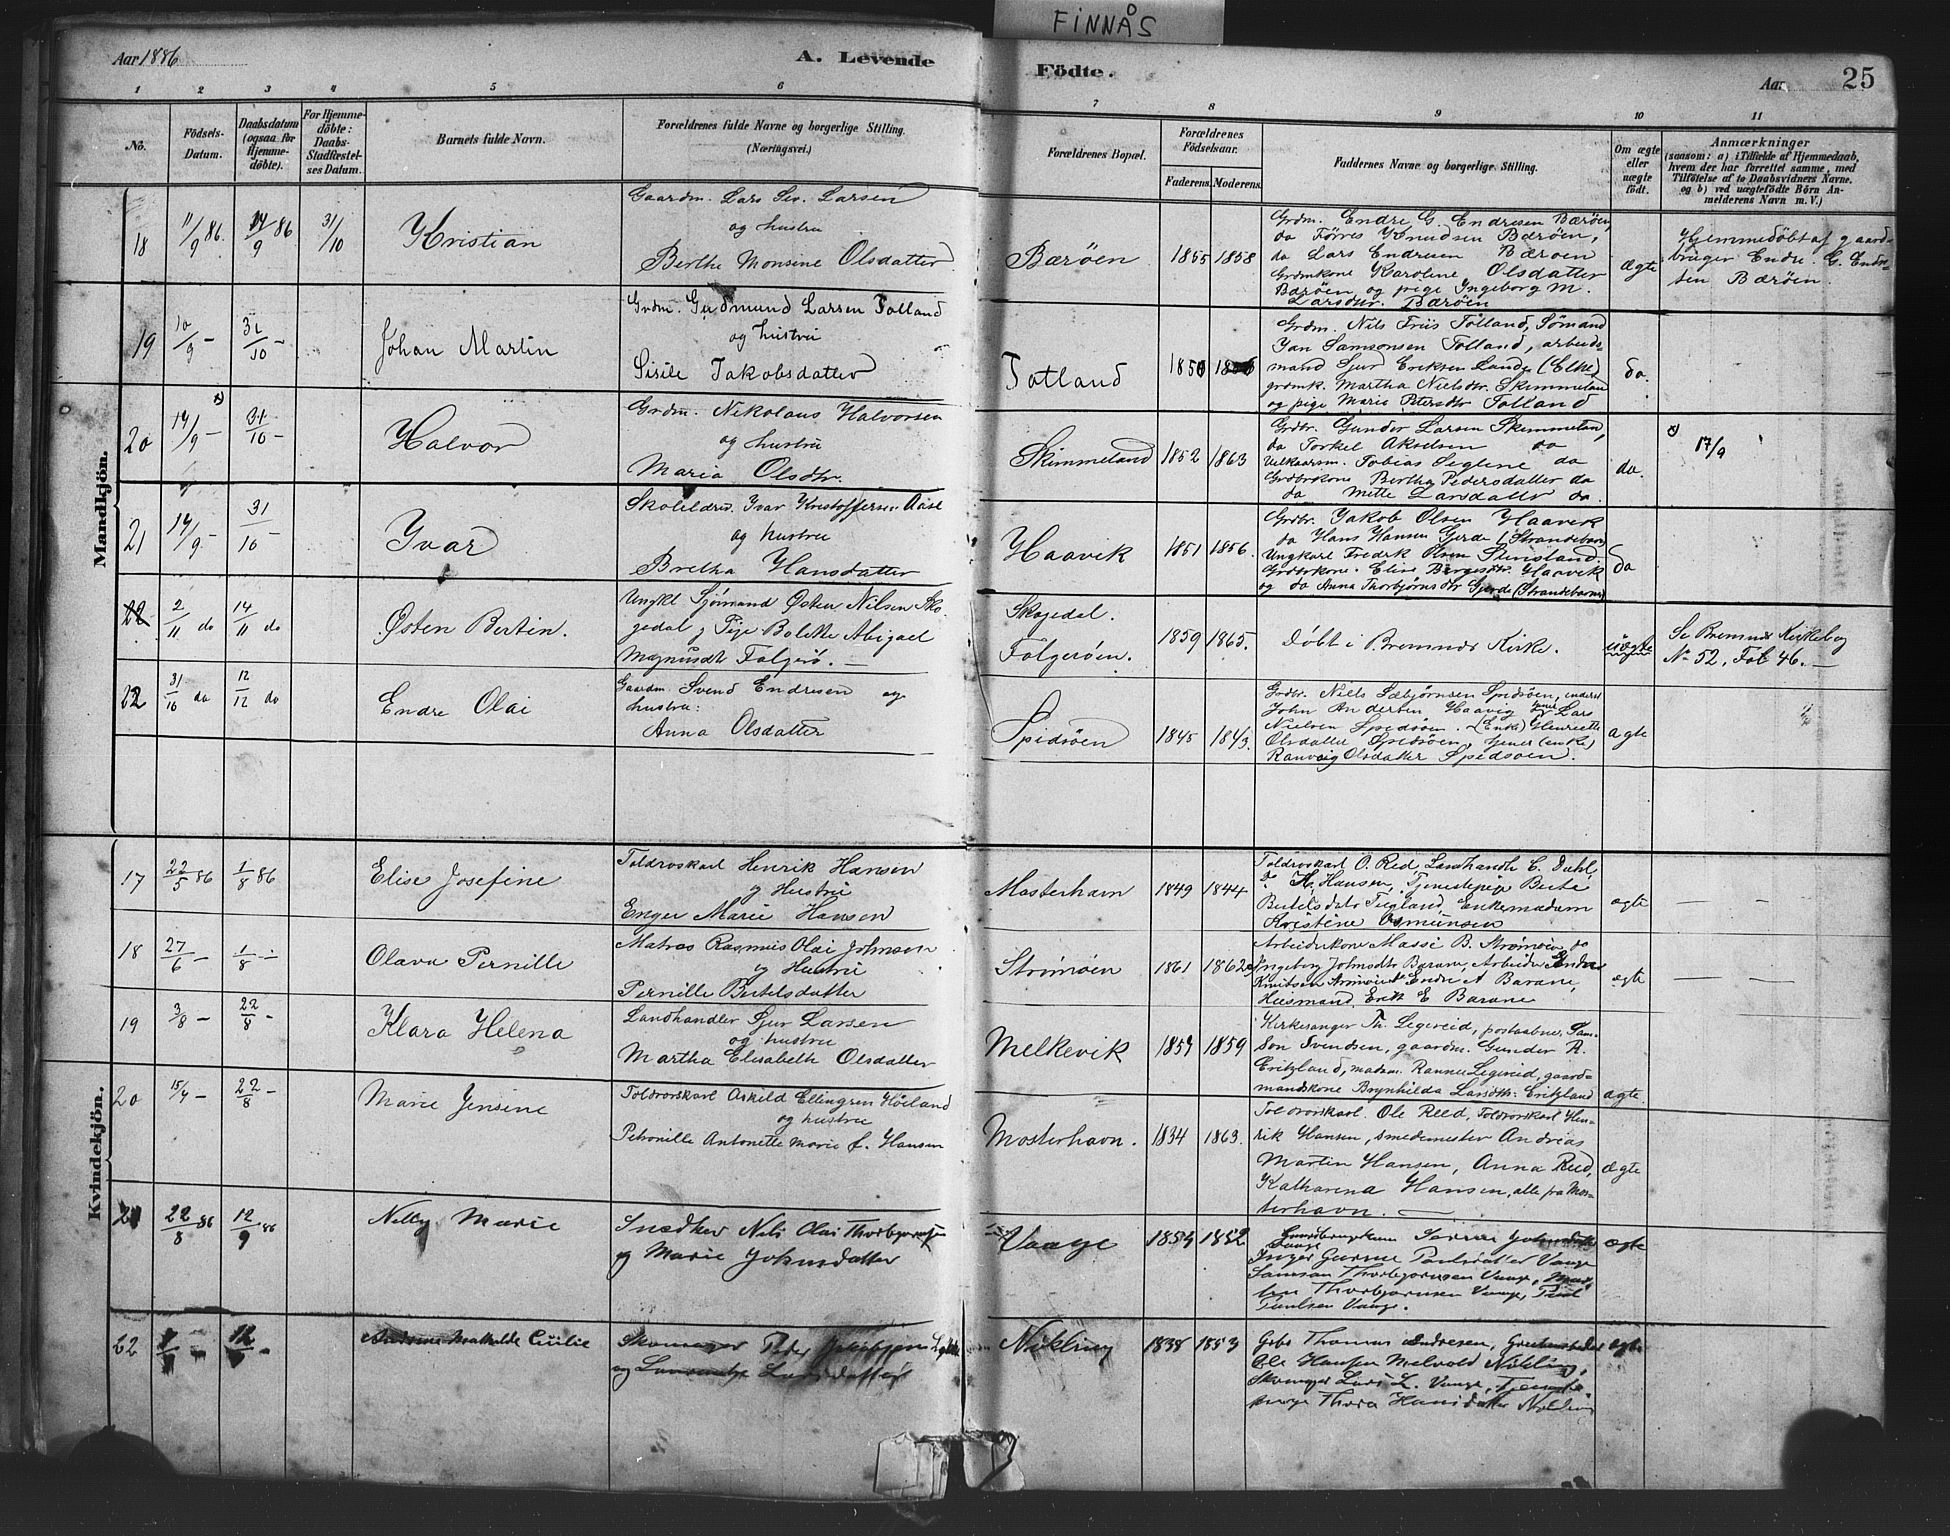 FINNÅS
Aar 1886
A. Levende
Födte.
Aar
25
1 2 3 4 5 6 7 8 9 10 11
No.
Födsels-
Datum.
Daabsdatum
(ogsaa for
Hjemme-
döbte).
For Hjemme-
döbte:
Daabs-
Stadfæstel-
ses Datum.
Barnets fulde Navn.
Forældrenes fulde Navne og borgerlige Stilling.
(Næringsvei.)
Forældrenes Bopæl.
Forældrenes
Födselsaar.
Faderens. Moderens.
Faddernes Navne og borgerlige Stilling.
Om ægte
eller
uægte
födt.
Anmærkninger
(saasom: a) i Tilfælde af Hjemmedaab,
hvem der har forrettet samme, med
Tilföielse af to Daabsvidners Navne.
og b) ved uægtefödte Börn An-
melderens Navn m. V.)
Mandkjön.
18
11/9 86.
14/9 86
31/10
Kristian
Gaardm. Lars Sev. Larsen
og hustru
Berthe Monsine Olsdatter
Bæröen
1855 1858
Grdm. Endre G. Endresen Bæröen,
do Törres Knudsen Bæröen,
do Lars Endresen Bæröen
Grdmkone Karoline Olsdatter
Bæröen og pige Ingeborg M.
Larsdtr. Bæröen
ægte
Hjemmedöbt af gaard-
bruger Endre G. Endre-
sen Bæröen.
19
10/9 –
31/10 –
Johan Martin
Grdm. Gudmund Larsen Totland
og hustru
Sisile Jakobsdatter
Totland
1850
Grdm. Nils Friis Totland, Sömand
Jan Samsonsen Totland, arbeids-
mand Sjur Eriksen Lande (Elke)
grdmk. Martha Nielsdtr. Skimmeland
og pige Maria Petersdtr Totland
do.
20
14/9 –
31/10 –
Halvor
Grdm. Nikolaus Halvorsen
og hustru
Maria Olsdtr.
Skimmeland
1852 1863
Grdbr. Gunder Larsen Skimmeland,
do Torkel Akselsen do
Ungkarl Tobias Seglene do
Grdbrkone Bertha Pedersdatter do
do Mette Larsdatter do.
do.
17/9
21
14/9 –
31/10 –
Ivar
Skoleldres. Ivar Kristoffersen Aase
og hustru
Bretha Hansdatter
Haavik
1851 1856.
Grdbr. Jakob Olsen Haavik
do Hans Hansen Gjerde (Strandebarm)
Ungkarl Fredrik Olsen Stensland
Grdbrkone. Elise Børgesdtr. Haavik
og do Anna Thorbjørnsdtr Gjerde (Strandebarm)
do
22
2/11 do
14/11 do
Østen Bertin.
Ungkl Sjömand Østen Nilsen Sko-
gedal og Pige Bolette Abigael
Magnusdt Folgerö. –
Skogedal.
Folgeröen.
1859 1865.
Döbt i Bremnes Kirke.
uægte
Se Bremnes Kirkebog
No 52, Fol 46. –
22
31/10 do
12/12 do
Endre Olai
Gaardm. Svend Endresen og
hustru:
Anna Olsdatter
Spidsöen
1845 1843.
Grdbr. Niels Sæbjørnsen Spidsöen,
John Andersen Haavig Lars
Nielsen Spidsöen. (Enke) Henriette
Olsdatter Spidsöen, (enke)
Ranveig Olsdatter Spidsöen.
ægte
Kvindekjön.
17
22/5 86
1/8 86
Elise Josefine
Toldroskarl Henrik Hansen
og Hustru
Enger Marie Hansen
Mosterhavn
1849 1844
Toldroskarl O. Red Landhandle E. Dahl,
do H. Hansen, Tjenestepige Berte
Bertelsdatr Tegland, Enkemadam
Kristine Osmunsen
ægte
– –
18
27/6 –
1/8 –
Olava Pernille
Matros Rasmus Olai Johnsen
og Hustru
Pernille Bertelsdatter
Strömöen
1861 1862
Arbeiderkone Massi B. Strömöen, do
Ingeborg Johnsdtr Barane, Arbeider Endre
Knutsen Strömöen Endre A Barane,
Husmand Erik E Barane
ægte
– –
19
3/8 –
22/8 –
Klara Helena
Landhandler Sjur Larsen
og hustru
Martha Elisabeth Olsdatter
Melkevik
1859 1859
Kirkesanger Th. Legereid, postaabner Sam-
son Svendsen, gaardm. Gunder R.
Eritzland, madm. Ranne Legereid, gaard-
mandskone Brynhilda Larsdtr. Eritzland
ægte.
20
15/7 –
22/8 –
Marie Jensine
Toldroskarl Askild Ellingsen Höiland
og hustru
Petronille Antonette Marie f. Hansen
Mosterhavn.
1834 1863.
Toldroskarl. Ole Reed, Toldroskarl Hen-
rik Hansen, smedemester Andreas
Martin Hansen, Anna Reed,
Katharina Hansen, alle fra Mos-
terhavn. –
ægte
21
22/8 86
12/9 86
Nelly Marie
Snedker Nils Olai Thorbjørnsen
og Marie Johnsdatter
Vaage
1854 1852
Gaardbrugerkone Johnsdatter
Vaage
Inger Gurine Paulsdatter Vaage
Samson Thorbjørnsen Vaage, Mar-
tin Thorbjørnsen Vaage, Paul
Paulsen Vaage.
ægte
22
12/ –
Mathilde Cecilie
Skomager Peder
og Larsdatter
Nikling
1838 1853
Gbr Thomas Andresen,
Ole Hansen Melvold Nikling,
Skomager Lars L. Vaage, Tjeneste-
pige Thora Hansdatter Nikling
ægte